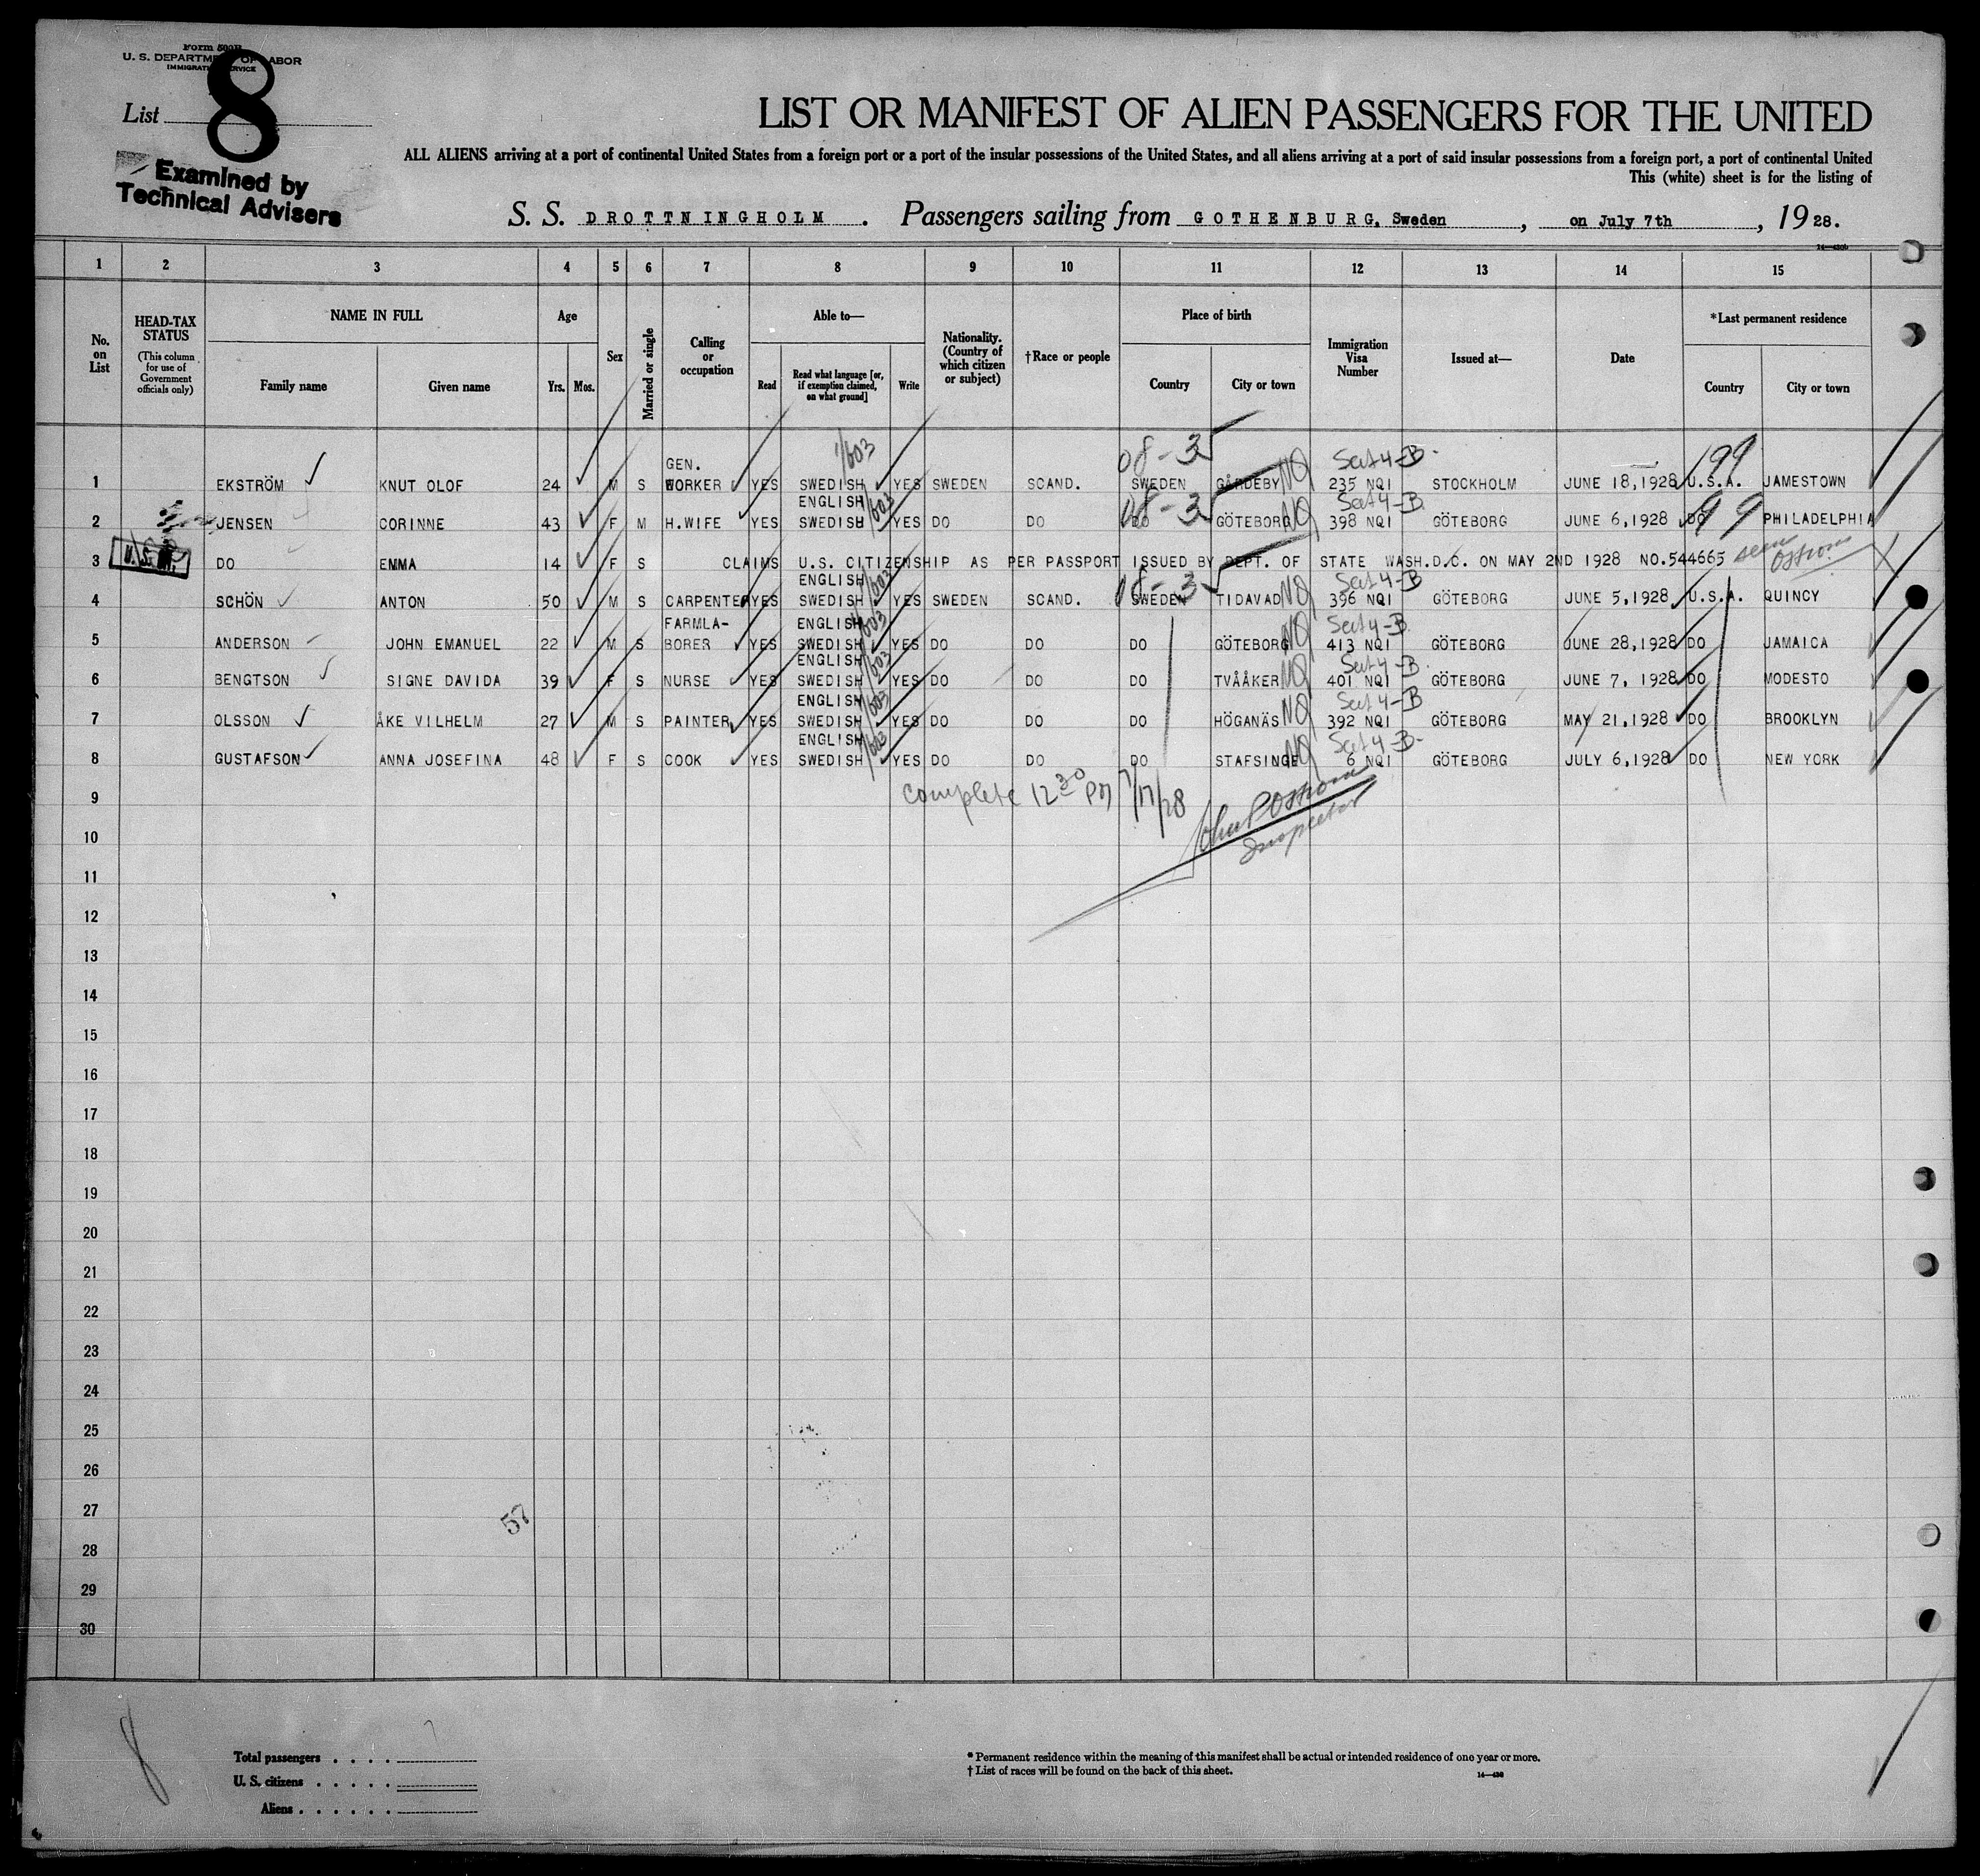 Form 500B
U. S. DEPARTMENT OF LABOR
IMMIGRATION SERVICE
List 8
Examined by
Technical Advisers
LIST OR MANIFEST OF ALIEN PASSENGERS FOR THE UNITED
ALL ALIENS arriving at a port of continental United States from a foreign port or a port of the insular possessions of the United States, and all aliens arriving at a port of said insular possessions from a foreign port, a port of continental United
This (white) sheet is for the listing of
S. S. DROTTNINGHOLM. Passengers sailing from GOTHENBURG, Sweden, on July 7th, 1928.
1 2 3 4 5 6 7 8 9 10 11 12 13 14 15
No. on List
HEAD-TAX STATUS
(This column for use of Government officials only)
NAME IN FULL
Family name Given name
Age
Yrs. Mos.
Sex
Married or single
Calling or occupation
Able to—
Read
Read what language [or, if exemption claimed, on what ground]
Write
Nationality. (Country of which citizen or subject)
†Race or people
Place of birth
Country City or town
Immigration Visa Number
Issued at—
Date
*Last permanent residence
Country City or town
08-3 Sect 4-B 199
1 EKSTRÖM KNUT OLOF 24 M S GEN. WORKER YES SWEDISH 1/603 YES SWEDEN SCAND. SWEDEN GÅRDEBY NQ 235 NQI STOCKHOLM JUNE 18,1928 U.S.A. JAMESTOWN
08-3 Sect 4-B 99
2 JENSEN CORINNE 43 F M H.WIFE YES ENGLISH SWEDISH 1/603 YES DO DO DO GÖTEBORG NQ 398 NQI GÖTEBORG JUNE 6,1928 DO PHILADELPHIA
3 DO EMMA 14 F S CLAIMS U.S. CITIZENSHIP AS PER PASSPORT ISSUED BY DEPT. OF STATE WASH.D.C. ON MAY 2ND 1928 NO.544665 seen Ostrom
08-3 Sect 4-B
4 SCHÖN ANTON 50 M S CARPENTER YES ENGLISH SWEDISH 1/603 YES SWEDEN SCAND. SWEDEN TIDAVAD NQ 396 NQI GÖTEBORG JUNE 5,1928 U.S.A. QUINCY
Sect 4-B
5 ANDERSON JOHN EMANUEL 22 M S FARMLA-BORER YES ENGLISH SWEDISH 1/603 YES DO DO DO GÖTEBORG NQ 413 NQI GÖTEBORG JUNE 28,1928 DO JAMAICA
Sect 4-B
6 BENGTSON SIGNE DAVIDA 39 F S NURSE YES ENGLISH SWEDISH 1/603 YES DO DO DO TVÅÅKER NQ 401 NQI GÖTEBORG JUNE 7, 1928 DO MODESTO
Sect 4-B
7 OLSSON ÅKE VILHELM 27 M S PAINTER YES ENGLISH SWEDISH 1/603 YES DO DO DO HÖGANÄS NQ 392 NQI GÖTEBORG MAY 21,1928 DO BROOKLYN
Sect 4-B
8 GUSTAFSON ANNA JOSEFINA 48 F S COOK YES ENGLISH SWEDISH 1/603 YES DO DO DO STAFSINGE NQ 6 NQI GÖTEBORG JULY 6,1928 DO NEW YORK
complete 12 30 PM 7/17/28
John P Ostrom
Inspector
9
10
11
12
13
14
15
16
17
18
19
20
21
22
23
24
25
26
27
57
28
29
30
8
Total passengers
U. S. citizens
Aliens
* Permanent residence within the meaning of this manifest shall be actual or intended residence of one year or more.
† List of races will be found on the back of this sheet.